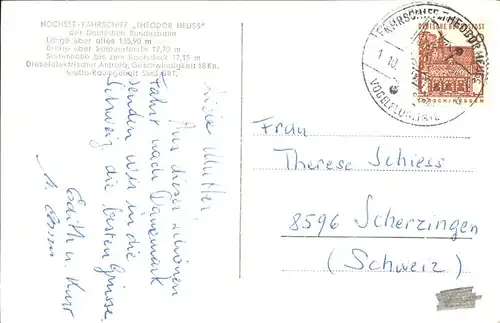 HOCHSEE-FÄHRSCHIFF „THEODOR HEUSS"
der Deutschen Bundesbahn
Länge über alles 135,90 m
Breite über Scheuerleiste 17,70 m
Seitenhöhe bis zum Bootsdeck 12,15 m
Dieselelektrischer Antrieb, Geschwindigkeit 18 Kn.
Brutto-Raumgehalt 5583 BRT.
Liebe Mutter!
Auf dieser schönen
Fahrt nach Dänemark
senden wir in die
Schweiz die besten Grüsse
Edith u. Kurt
FÄHRSCHIFF THEODOR HEUSS
VOGELFLUGLINIE
DEUTSCHE BUNDESPOST
LORSCH/HESSEN
Frau
Therese Schiess
8596 Scherzingen
(Schweiz)